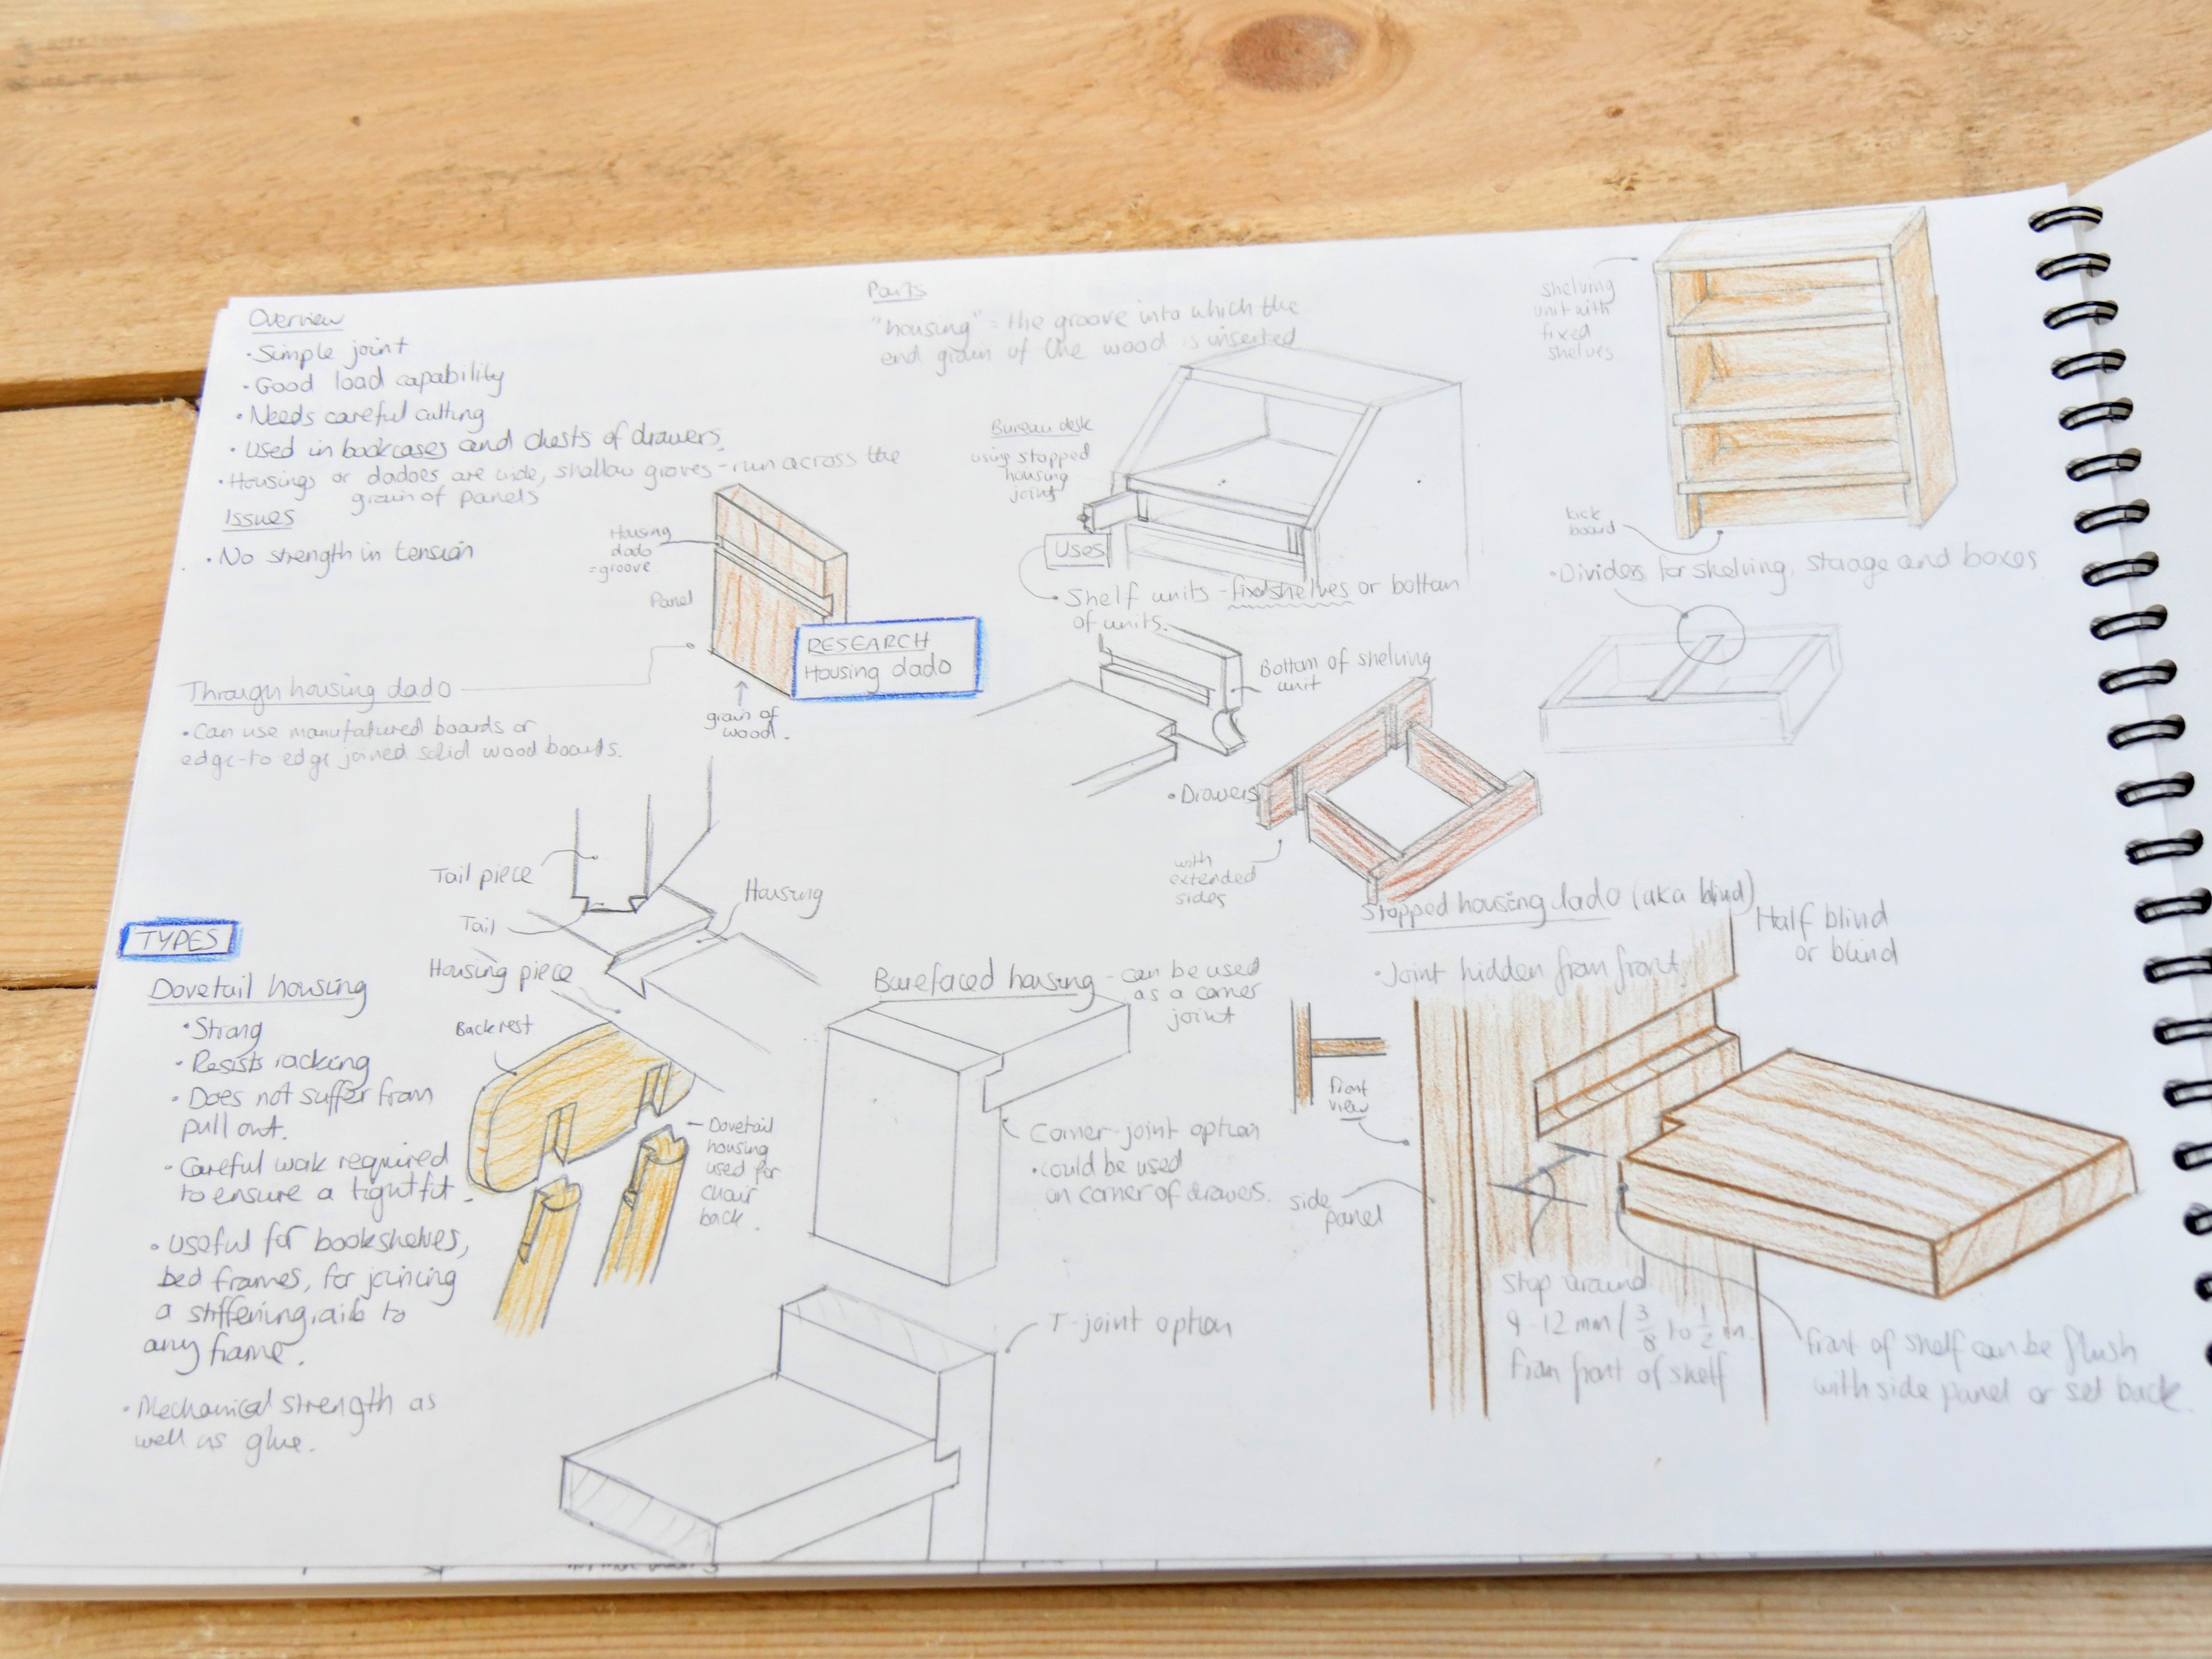 Overview
· Simple joint
· Good load capability
· Needs careful cutting
· Used in bookcases and chests of drawers.
· Housings or dadoes are wide, shallow groves - run across the
grain of panels
Issues
· No strength in tension
Housing
dado
= groove
Panel
RESEARCH
Housing dado
grain of
wood.
Through housing dado
· Can use manufatured boards or
edge-to edge joined solid wood boards.
Parts
"housing" = the groove into which the
end grain of the wood is inserted
Bureau desk
using stopped
housing
joint
Uses
· Shelf units - fixed shelves or bottom
of units.
Bottom of shelving
unit
· Drawers
with
extended
sides
shelving
unit with
fixed
shelves
kick
board
· Dividers for shelving, storage and boxes
TYPES
Tail piece
Tail
Housing
Housing piece
Dovetail housing
· Strong
· Resists racking
· Does not suffer from
pull out.
· Careful work required
to ensure a tight fit.
· useful for bookshelves,
bed frames, for joining
a stiffening rib to
any frame.
· Mechanical strength as
well as glue.
Back rest
Dovetail
housing
used for
chair
back.
Barefaced housing - can be used
as a corner
joint
Corner-joint option
· could be used
on corner of drawers.
T-joint option
Stopped housing dado (aka blind)
Half blind
or blind
· Joint hidden from front
front
view
side
panel
Stop around
9-12 mm / 3/8 to 1/2 in.
from front of shelf
front of shelf can be flush
with side panel or set back.